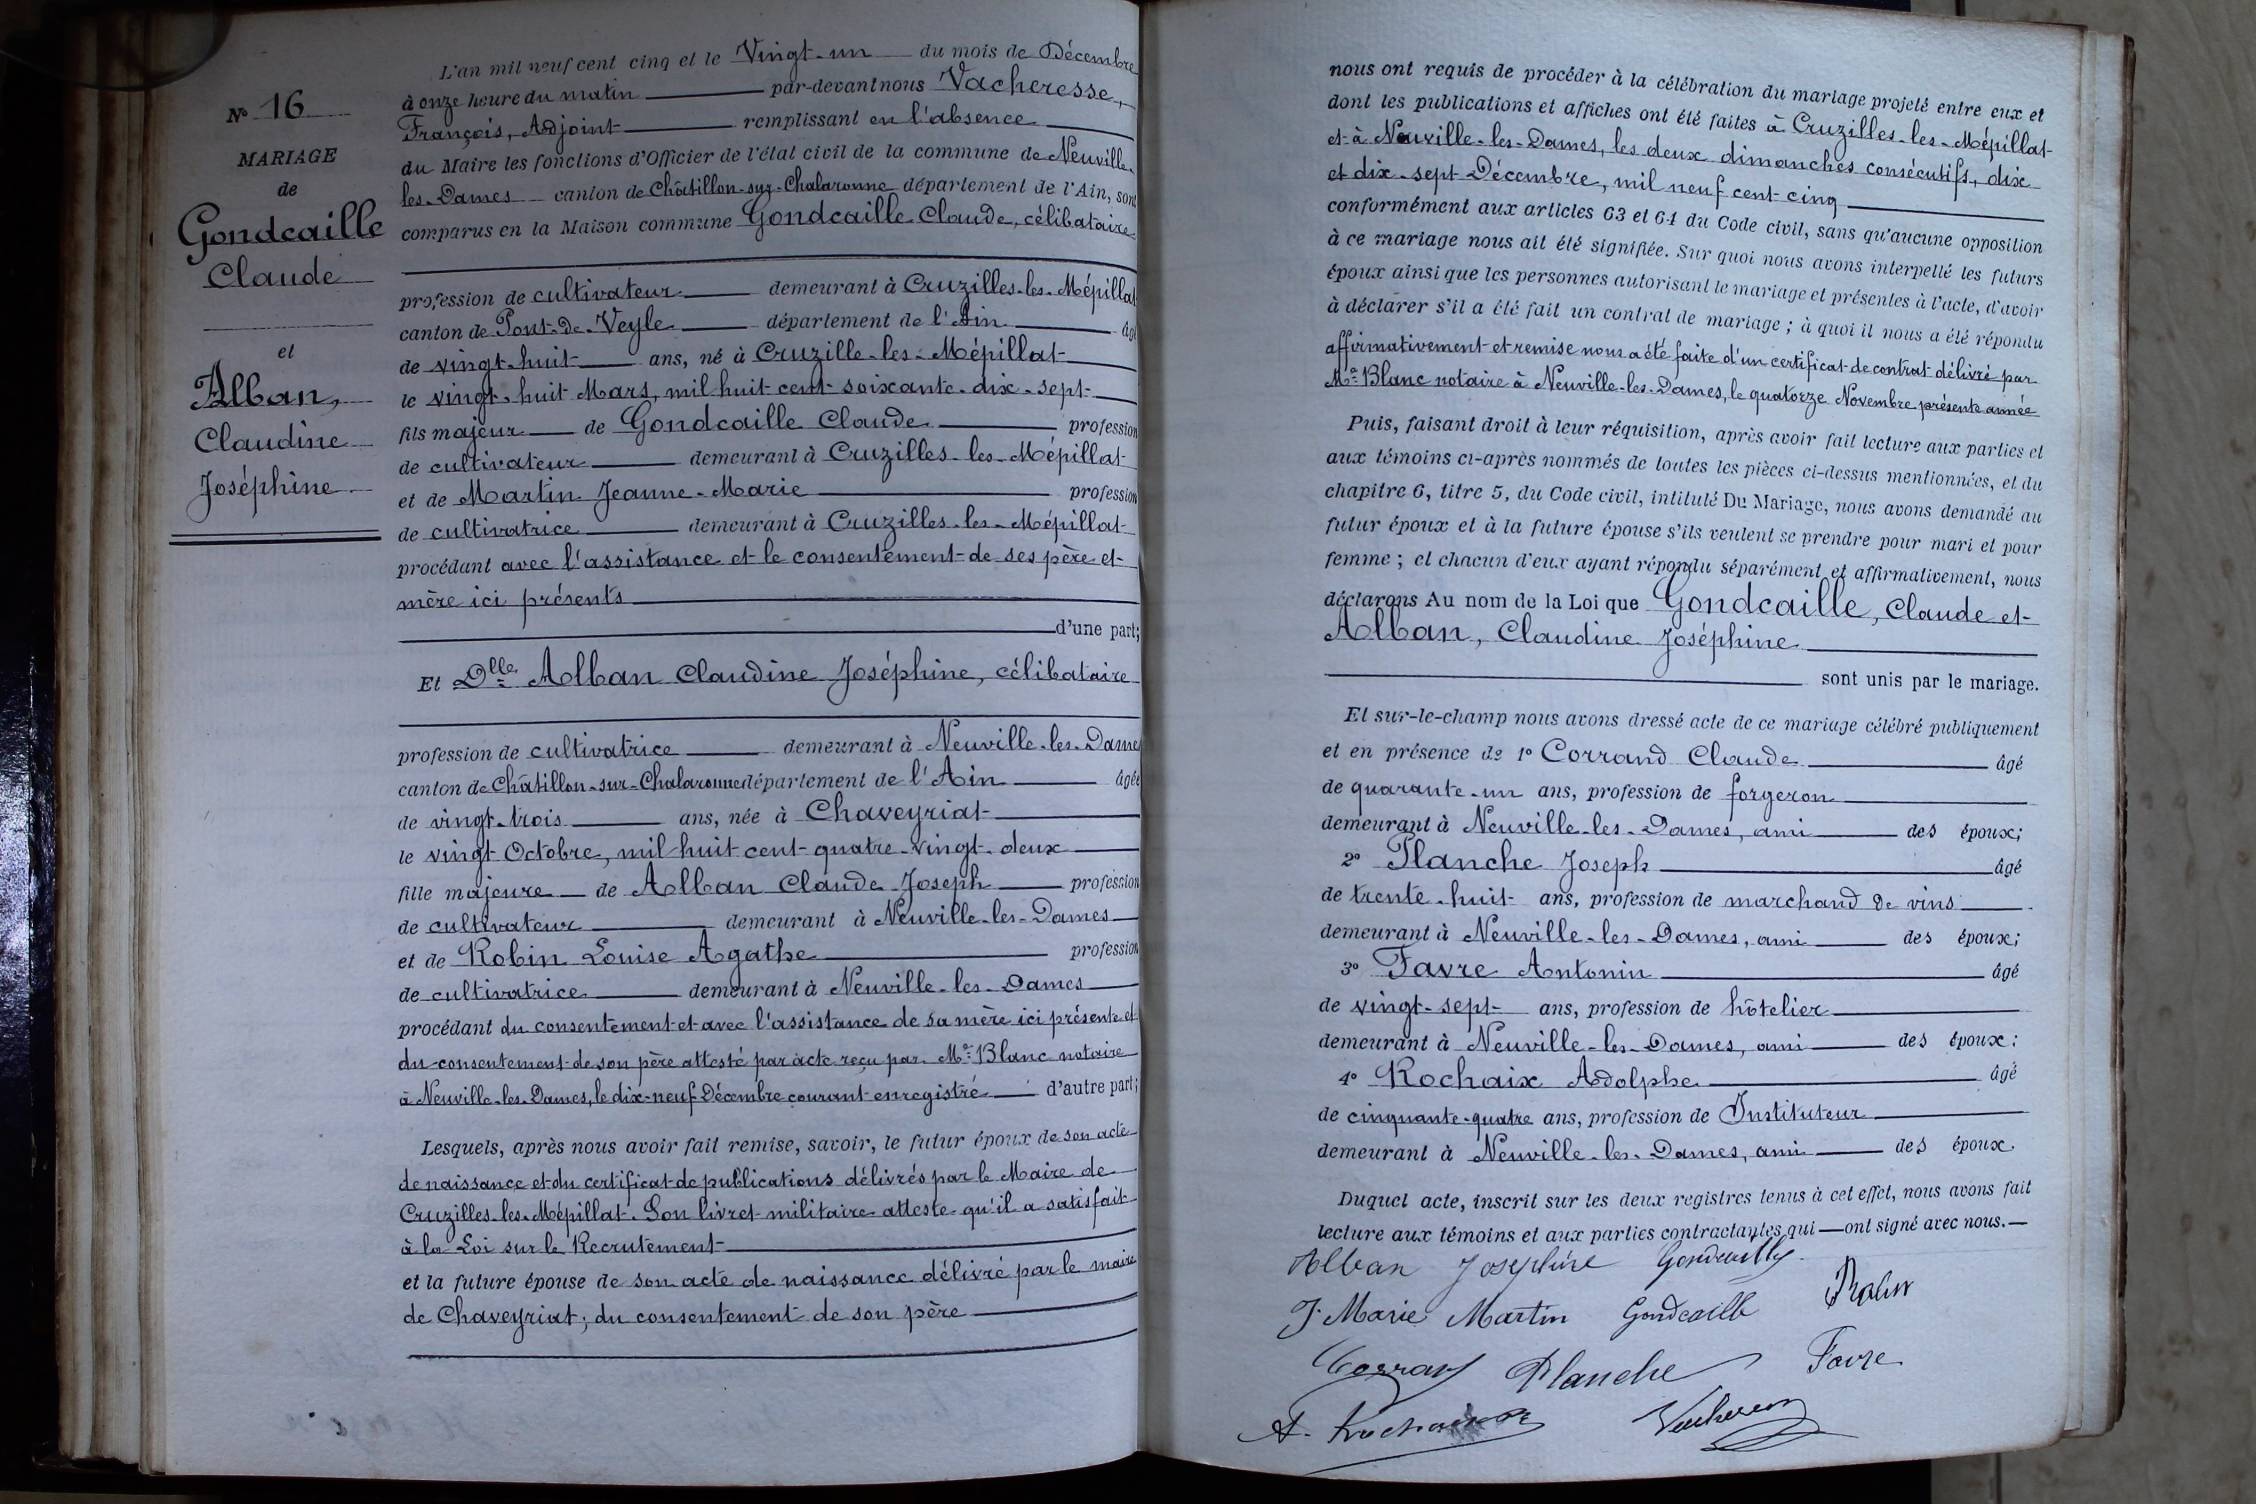 N° 16
MARIAGE
de
Gondcaille
Claude
et
Alban,
Claudine
Joséphine
L'an mil neuf cent cinq et le Vingt-un du mois de Décembre
à onze heure du matin par-devant nous Vacheresse,
François, Adjoint remplissant en l'absence
du Maire les fonctions d'Officier de l'état civil de la commune de Neuville-
les-Dames canton de Châtillon-sur-Chalaronne département de l'Ain, sont
comparus en la Maison commune Gondcaille Claude, célibataire
profession de cultivateur demeurant à Cruzilles-les-Mépillat
canton de Pont-de-Veyle département de l'Ain âgé
de vingt-huit ans, né à Cruzille-les-Mépillat
le vingt-huit Mars, mil huit cent soixante-dix-sept
fils majeur de Gondcaille Claude profession
de cultivateur demeurant à Cruzilles-les-Mépillat
et de Martin Jeanne-Marie profession
de cultivatrice demeurant à Cruzilles-les-Mépillat
procédant avec l'assistance et le consentement de ses père et
mère ici présents
d'une part;
Et Dlle Alban Claudine Joséphine, célibataire
profession de cultivatrice demeurant à Neuville-les-Dames
canton de Châtillon-sur-Chalaronne département de l'Ain âgée
de vingt-trois ans, née à Chaveyriat
le vingt Octobre, mil huit cent quatre-vingt-deux
fille majeure de Alban Claude Joseph profession
de cultivateur demeurant à Neuville-les-Dames
et de Robin Louise Agathe profession
de cultivatrice demeurant à Neuville-les-Dames
procédant du consentement et avec l'assistance de sa mère ici présente et
du consentement de son père attesté par acte reçu par Me Blanc notaire
à Neuville-les-Dames, le dix-neuf Décembre courant enregistré d'autre part;
Lesquels, après nous avoir fait remise, savoir, le futur époux de son acte
de naissance et du certificat de publications délivrés par le Maire de
Cruzilles-les-Mépillat. Son livret militaire atteste qu'il a satisfait
à la Loi sur le Recrutement
et la future épouse de son acte de naissance délivré par le maire
de Chaveyriat; du consentement de son père
nous ont requis de procéder à la célébration du mariage projeté entre eux et
dont les publications et affiches ont été faites à Cruzilles-les-Mépillat
et à Neuville-les-Dames, les deux dimanches consécutifs, dix
et dix-sept Décembre, mil neuf cent cinq
conformément aux articles 63 et 64 du Code civil, sans qu'aucune opposition
à ce mariage nous ait été signifiée. Sur quoi nous avons interpellé les futurs
époux ainsi que les personnes autorisant le mariage et présentes à l'acte, d'avoir
à déclarer s'il a été fait un contrat de mariage; à quoi il nous a été répondu
affirmativement et remise nous a été faite d'un certificat de contrat délivré par
Me Blanc notaire à Neuville-les-Dames, le quatorze Novembre présente année
Puis, faisant droit à leur réquisition, après avoir fait lecture aux parties et
aux témoins ci-après nommés de toutes les pièces ci-dessus mentionnées, et du
chapitre 6, titre 5, du Code civil, intitulé Du Mariage, nous avons demandé au
futur époux et à la future épouse s'ils veulent se prendre pour mari et pour
femme; et chacun d'eux ayant répondu séparément et affirmativement, nous
déclarons Au nom de la Loi que Gondcaille, Claude et
Alban, Claudine Joséphine
sont unis par le mariage.
Et sur-le-champ nous avons dressé acte de ce mariage célébré publiquement
et en présence de 1° Corrand Claude âgé
de quarante-un ans, profession de forgeron
demeurant à Neuville-les-Dames, ami des époux;
2° Planche Joseph âgé
de trente-huit ans, profession de marchand de vins
demeurant à Neuville-les-Dames, ami des époux;
3° Favre Antonin âgé
de vingt-sept ans, profession de hôtelier
demeurant à Neuville-les-Dames, ami des époux;
4° Rochaix Adolphe âgé
de cinquante-quatre ans, profession de Instituteur
demeurant à Neuville-les-Dames, ami des époux.
Duquel acte, inscrit sur les deux registres tenus à cet effet, nous avons fait
lecture aux témoins et aux parties contractantes qui ont signé avec nous.
Alban Joséphine
J. Marie Martin Gondcaille Robin
Corrand Planche Favre
A. Rochaix